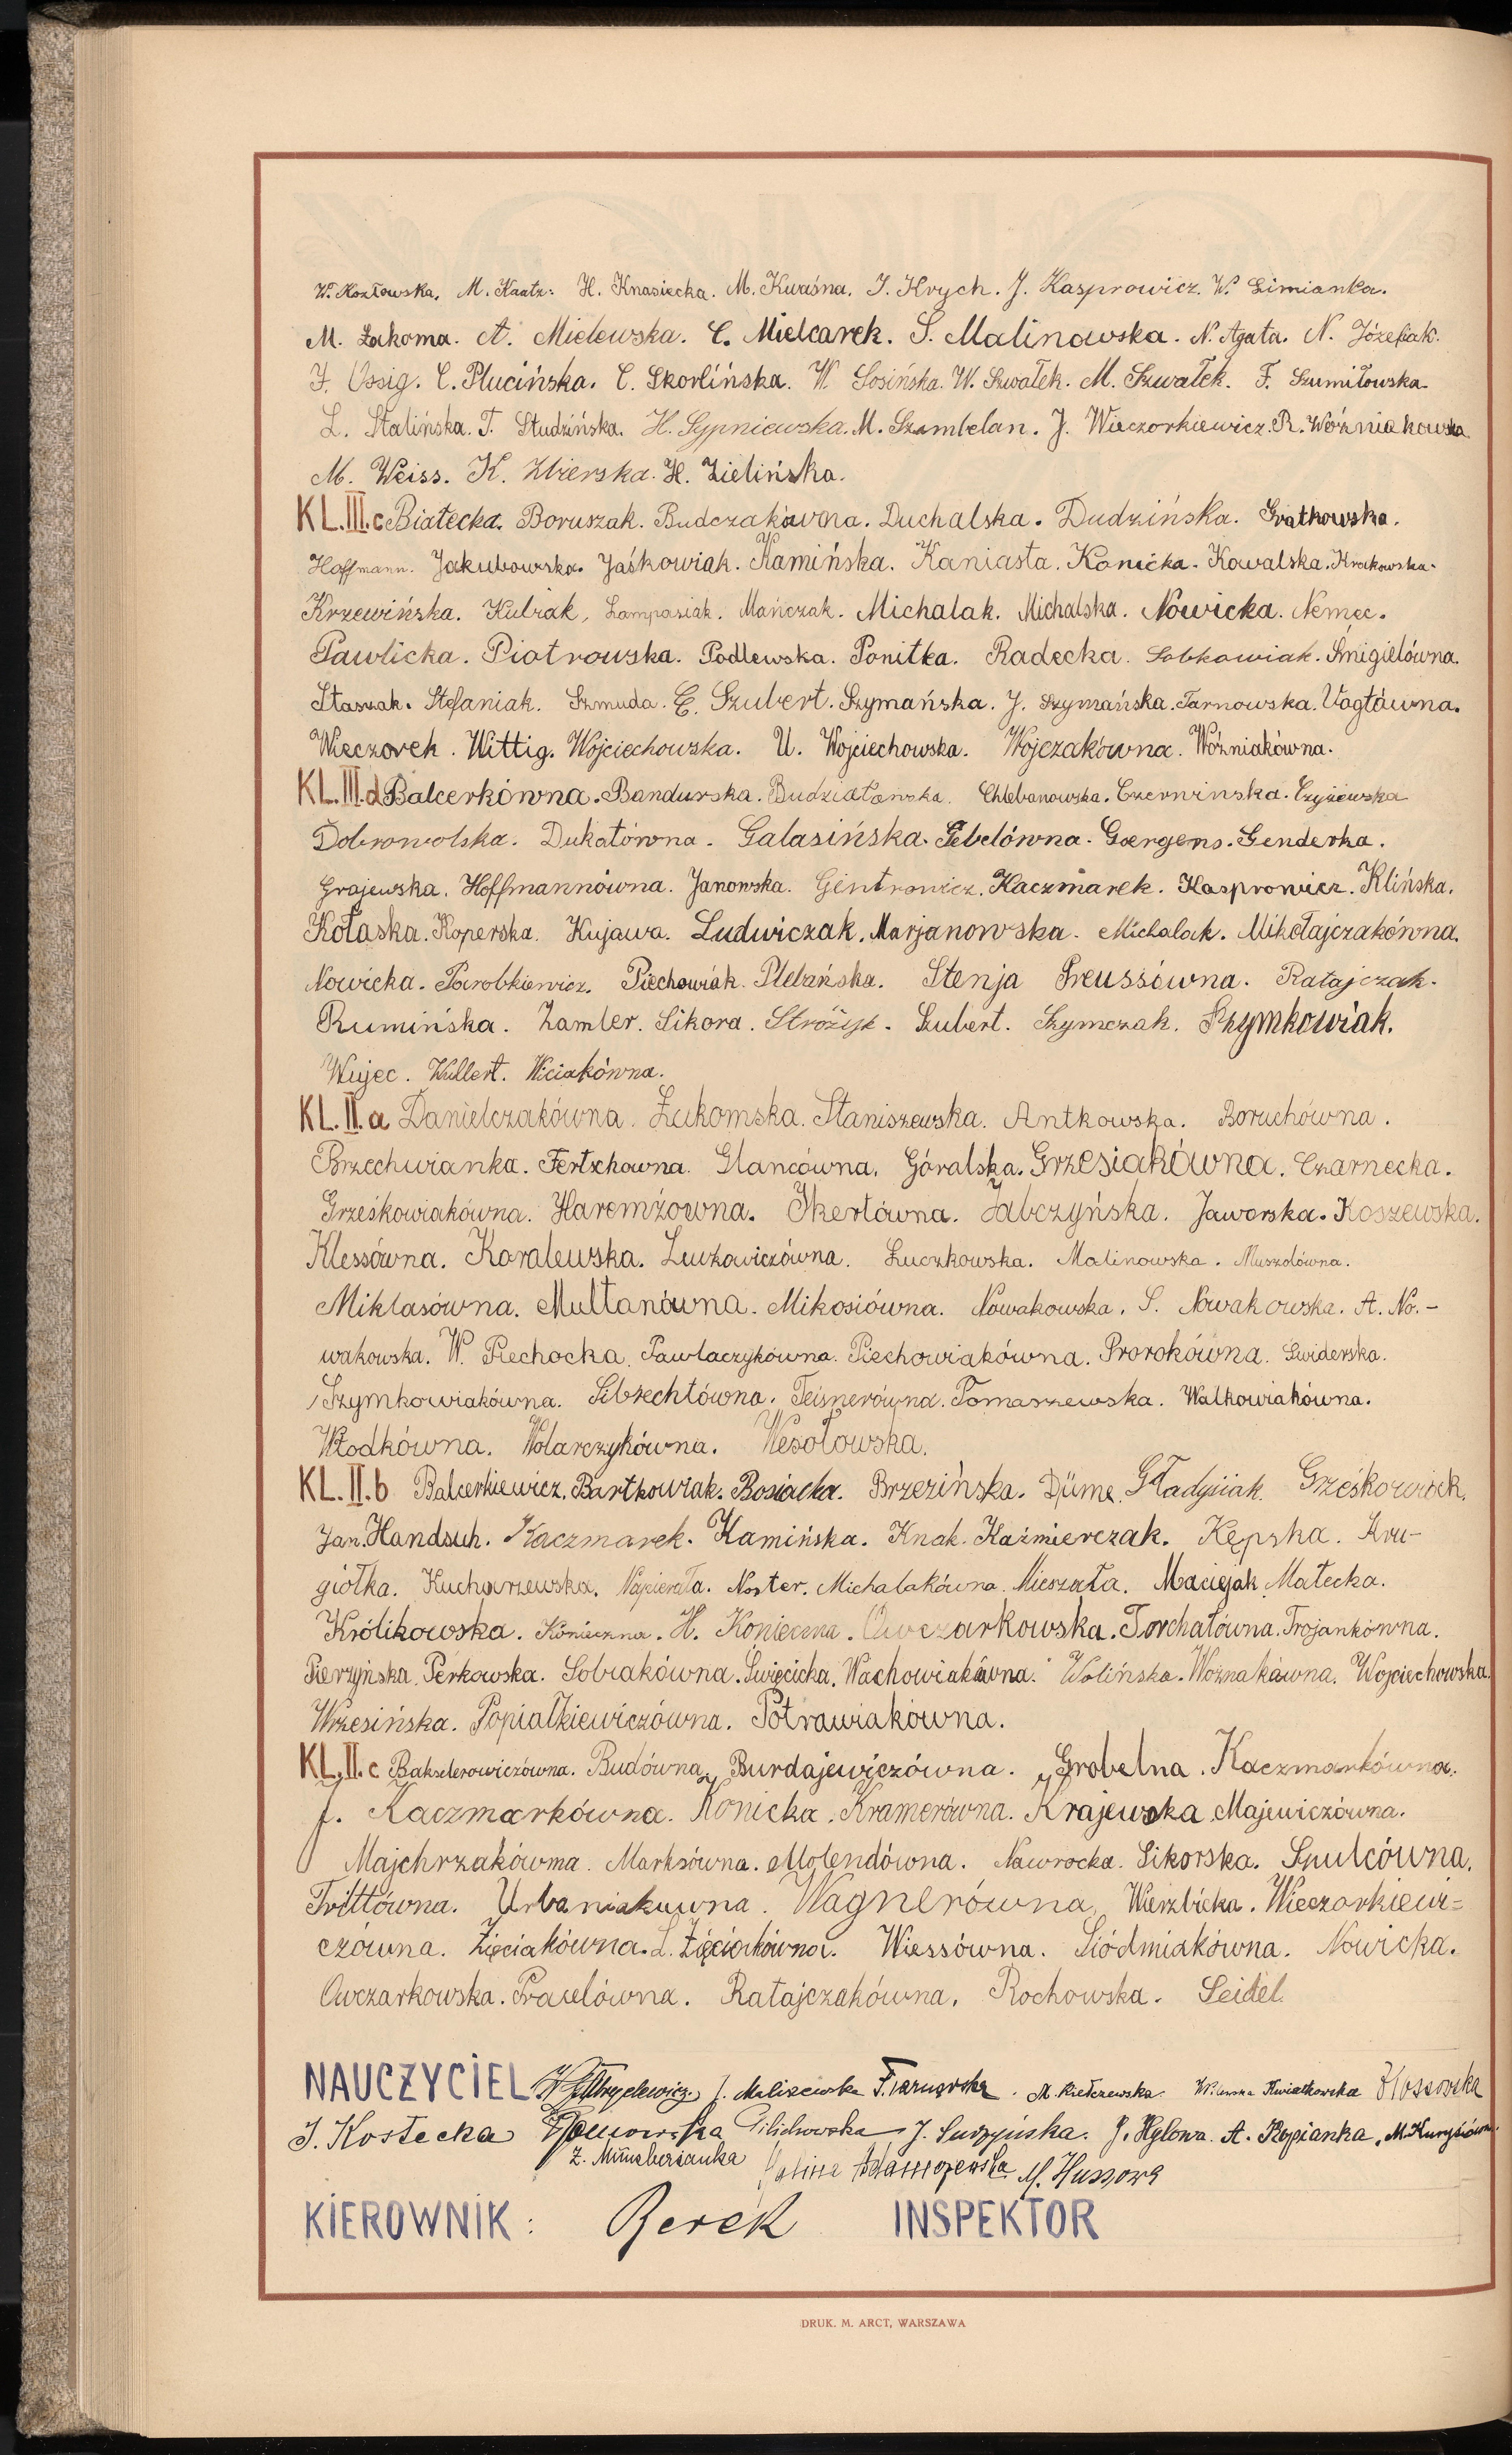 W. Kozłowska. M. Kaatz. H. Knasiecka. M. Kwaśna. J. Krych. J. Kasprowicz. W. Limianka.
M. Łakoma. A. Mielewska. C. Mielcarek. S. Malinowska. N. Agata. N. Józefiak.
F. Ossig. C. Plucińska. C. Skorlińska. W. Sosińska. W. Szwałek. M. Szwałek. F. Szumiłowska.
L. Stalińska. T. Studzińska. H. Sypniewska. M. Szambelan. J. Wieczorkiewicz. R. Woźniakowska
M. Weiss. K. Zbierska. H. Zielińska.
KL. III. c Białecka. Boruszak. Budczakówna. Duchalska. Dudzińska. Gratkowska.
Hoffmann. Jakubowska. Jaśkowiak. Kamińska. Kaniasta. Konicka. Kowalska. Krakowska.
Krzewińska. Kubiak, Lampasiak. Mańczak. Michalak. Michalska. Nowicka. Nemec.
Pawlicka. Piotrowska. Podlewska. Ponitka. Radecka. Sobkowiak. Śmigielówna.
Staszak. Stefaniak. Szmuda. E. Szubert. Szymańska. J. Szymańska. Tarnowska. Vogtówna.
Wieczorek. Wittig. Wojciechowska. U. Wojciechowska. Wojczakówna. Woźniakówna.
KL. III. d Balcerkówna. Bandurska. Budziałowska. Chlebanowska. Czerwinska. Czyżewska
Dobrowolska. Dukatówna. Galasińska. Gebelówna. Goergens. Genderka.
Grajewska. Hoffmannówna. Janowska. Gintrowicz. Kaczmarek. Kasprowicz. Klińska.
Kołaska. Koperska. Kujawa. Ludwiczak. Marjanowska. Michalak. Mikołajczakówna.
Nowicka. Parobkiewicz. Piechowiak. Plebańska. Stenja Preussówna. Ratajczak.
Rumińska. Zamler. Sikora. Stróżyk. Szubert. Szymczak. Szymkowiak.
Wujec. Wullert. Wiciakówna.
KL. II. a Danielczakówna. Żukomska. Staniszewska. Antkowska. Boruchówna.
Brzechwianka. Fertschowna. Glancówna. Góralska. Grzesiakówna. Czarnecka.
Grześkowiakówna. Haremźowna. Ikertówna. Jabczyńska. Jaworska. Koszewska.
Klessówna. Koralewska. Lewkowiczówna. Łuczkowska. Malinowska. Muszolówna.
Miklasówna. Multanówna. Mikosiówna. Nowakowska. S. Nowakowska. A. No.-
wakowska. W. Piechocka. Pawlaczykówna. Piechowiakówna. Prorokówna. Świderska.
Szymkowiakówna. Sibrechtówna. Teisnerówna. Tomaszewska. Walkowiakówna.
Włodkówna. Wolarczykówna. Wesołowska.
KL. II. b Balcerkiewicz. Bartkowiak. Bosiacka. Brzezińska. Düme. Gładysiak. Grześkowiak.
Jan. Handsuh. Kaczmarek. Kamińska. Knak. Kaźmierczak. Kępska. Kru-
giołka. Kucharzewska. Napierała. Noster. Michalakówna. Mieszała. Maciejak. Małecka.
Królikowska. Konieczna. H. Konieczna. Owczarkowska. Torchałówna. Trojankówna.
Pierzyńska. Perkowska. Sobiakówna. Święcicka. Wachowiakówna. Wolińska. Woznakówna. Wojciechowska.
Wrzesińska. Popiałkiewiczówna. Potrawiakówna.
KL. II. c Bakselerowiczówna. Budówna. Burdajewiczówna. Grobelna. Kaczmarkówna.
J. Kaczmarkówna. Konicka. Kramerówna. Krajewska. Majewiczówna.
Majchrzakówma. Marksówna. Molendówna. Nawrocka. Sikorska. Szulcówna.
Trittówna. Urbaniakówna. Wagnerówna. Wierzbicka. Wieczorkiewi=
czówna. Zięciakówna. L. Zięciakówna. Wiessówna. Siódmiakówna. Nowicka.
Owczarkowska. Praselówna. Ratajczakówna. Rochowska. Seidel.
NAUCZYCIEL J. Maliszewska F. Tarnowska. M. Kiełczewska. Kwiatkowska Kłossowska
J. Kostecka Gilichowska J. Surzyńska. J. Hylowa. A. Kopianka. M.
Z. Münchberzanka Halina Adamczewska M. Hussowa
KIEROWNIK: Berek INSPEKTOR
DRUK. M. ARCT, WARSZAWA